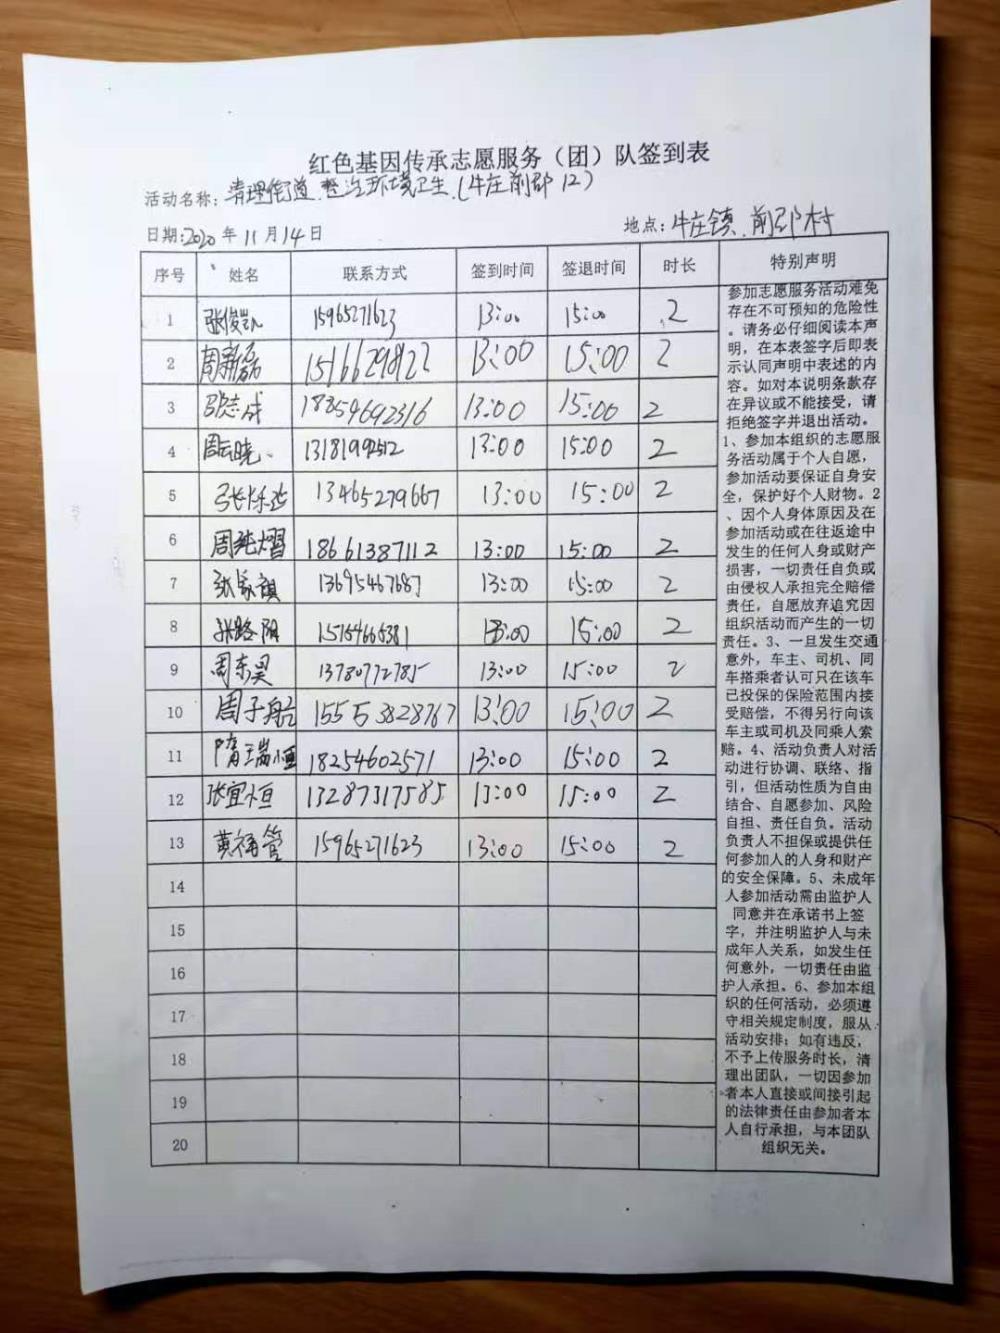 红色基因传承志愿服务（团）队签到表
活动名称：清理街道,整治环境卫生(牛庄前邵12)
日期:2020年11月14日 地点:牛庄镇.前邵村
序号 姓名 联系方式 签到时间 签退时间 时长 特别声明
1 张俊凯 15965271623 13:00 15:00 2
2 周新磊 15:00 13:00 2
3 18354692316 13:00 15:00 2
4 周云晓 13:00 15:00 2
5 13465279667 13:00 15:00 2
6 周纯熠 18661387112 13:00 15:00 2
7 张家祺 13695467687 13:00 15:00 2
8 张路阳 13:00 15:00 2
9 周东昊 13780772785 13:00 15:00 2
10 周子船 15553828767 13:00 15:00 2
11 隋瑞恒 18254602571 13:00 15:00 2
12 张宜恒 13287317585 13:00 15:00 2
13 黄福管 15965271623 13:00 15:00 2
14
15
16
17
18
19
20
参加志愿服务活动难免
存在不可预知的危险性
。请务必仔细阅读本声
明，在本表签字后即表
示认同声明中表述的内
容。如对本说明条款存
在异议或不能接受，请
拒绝签字并退出活动。
1、参加本组织的志愿服
务活动属于个人自愿，
参加活动要保证自身安
全，保护好个人财物。2
、因个人身体原因及在
参加活动或在往返途中
发生的任何人身或财产
损害，一切责任自负或
由侵权人承担完全赔偿
责任，自愿放弃追究因
组织活动而产生的一切
责任。3、一旦发生交通
意外，车主、司机、同
车搭乘者认可只在该车
已投保的保险范围内接
受赔偿，不得另行向该
车主或司机及同乘人索
赔。4、活动负责人对活
动进行协调、联络、指
引，但活动性质为自由
结合、自愿参加、风险
自担、责任自负。活动
负责人不担保或提供任
何参加人的人身和财产
的安全保障。5、未成年
人参加活动需由监护人
同意并在承诺书上签
字，并注明监护人与未
成年人关系，如发生任
何意外，一切责任由监
护人承担。6、参加本组
织的任何活动，必须遵
守相关规定制度，服从
活动安排；如有违反，
不予上传服务时长，清
理出团队，一切因参加
者本人直接或间接引起
的法律责任由参加者本
人自行承担，与本团队
组织无关。